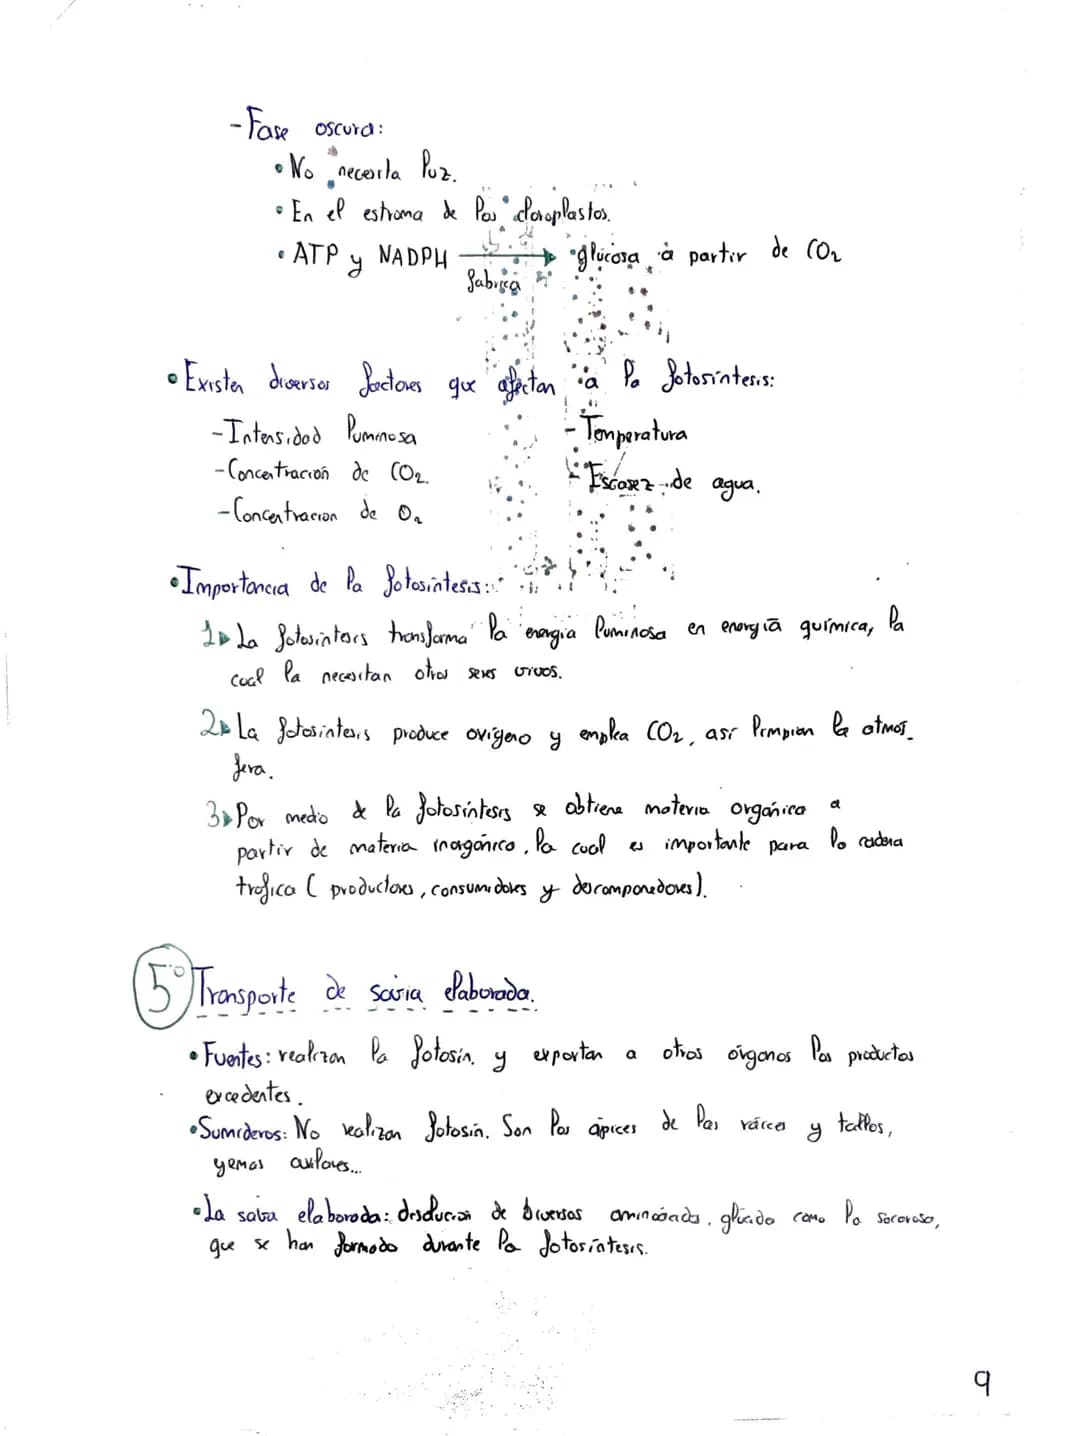 -Fase oscura:
• No necesita luz.
• En el estroma de los cloroplastos.
• ATP y NADPH → glucosa a partir de CO2
fabrica
• Existen diversos factores que afectan a la fotosíntesis:
-Intensidad luminosa
-Temperatura
-Concentración de CO2.
-Escasez de agua.
-Concentración de O2
• Importancia de la fotosíntesis:
1▸ La fotosíntesis transforma la energía luminosa en energía química, la
cual la necesitan otros seres vivos.
2▸ La fotosíntesis produce oxígeno y emplea CO2, así limpian la atmos_
fera.
3▸ Por medio de la fotosíntesis se obtiene materia orgánica a
partir de materia inorgánica, la cual es importante para la cadena
trofica ( productores, consumidores y descomponedores).
5º Transporte de savia elaborada.
• Fuentes: realizan la fotosín. y exportan a otros órganos los productos
excedentes.
• Sumideros: No realizan fotosín. Son los ápices de las raíces y tallos,
yemas axilares...
• La savia elaborada: disolución de diversos aminoácidos, glúcido como la sacarosa,
que se han formado durante la fotosíntesis.
9